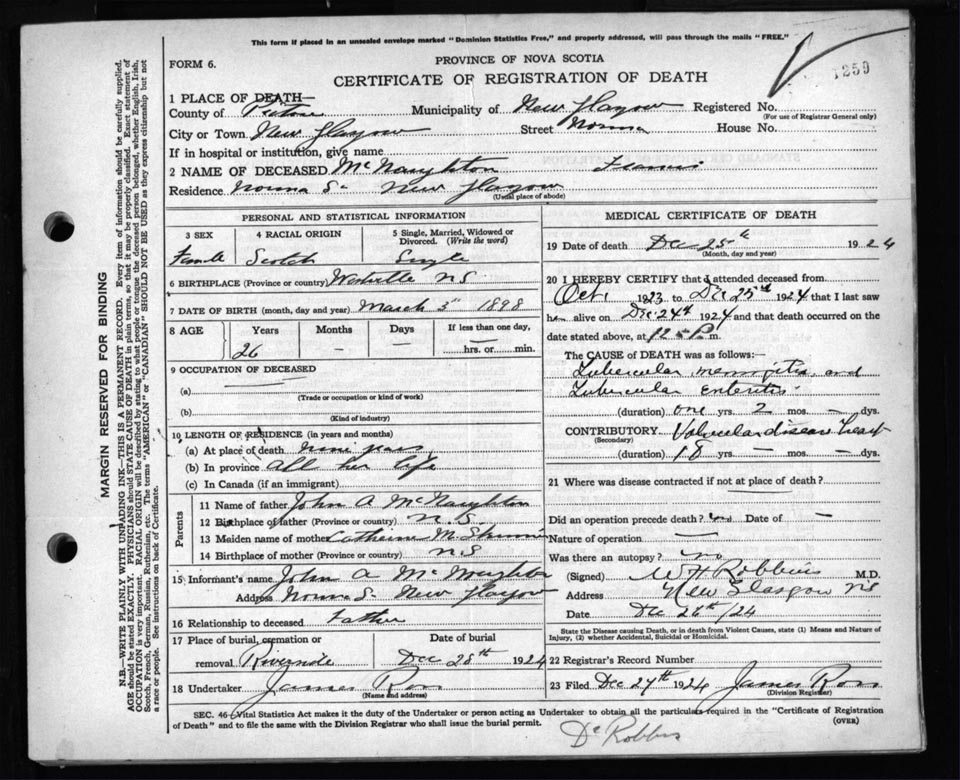 This form if placed in an unsealed envelope marked "Dominion Statistics Free," and properly addressed, will pass through the mails "FREE."
FORM 6.
PROVINCE OF NOVA SCOTIA
1259
CERTIFICATE OF REGISTRATION OF DEATH
1 PLACE OF DEATH—
County of Pictou Municipality of New Glasgow Registered No.
(For use of Registrar General only)
City or Town New Glasgow Street Norma House No.
If in hospital or institution, give name
2 NAME OF DECEASED McNaughton
Residence Norma St New Glasgow
(Usual place of abode)
PERSONAL AND STATISTICAL INFORMATION
3 SEX 4 RACIAL ORIGIN 5 Single, Married, Widowed or Divorced. (Write the word)
Female Scotch Single
6 BIRTHPLACE (Province or country) Westville N S
7 DATE OF BIRTH (month, day and year) March 3rd 1898
8 AGE Years Months Days If less than one day,
26 — — hrs. or min.
9 OCCUPATION OF DECEASED
(a)
(Trade or occupation or kind of work)
(b)
(Kind of industry)
10 LENGTH OF RESIDENCE (in years and months)
(a) At place of death nine yrs
(b) In province all her life
(c) In Canada (if an immigrant)
Parents
11 Name of father John A McNaughton
12 Birthplace of father (Province or country) N.S.
13 Maiden name of mother Catherine M
14 Birthplace of mother (Province or country) N S
15 Informant's name John A McNaughton
Address Norma S. New Glasgow
16 Relationship to deceased Father
17 Place of burial, cremation or Date of burial
removal Riverside Dec 28th 1924
18 Undertaker James Ross
(Name and address)
MEDICAL CERTIFICATE OF DEATH
19 Date of death Dec 25th 1924
(Month, day and year)
20 I HEREBY CERTIFY that I attended deceased from
Oct 1 1923 to Dec 25th 1924 that I last saw
her alive on Dec 24th 1924 and that death occurred on the
date stated above, at 12 P m.
The CAUSE of DEATH was as follows:—
Tubercular meningitis and
Tubercular enteritis
(duration) one yrs 2 mos. — dys.
CONTRIBUTORY Valvular disease heart
(Secondary)
(duration) 18 yrs — mos. — dys.
21 Where was disease contracted if not at place of death?
Did an operation precede death? no Date of —
Nature of operation —
Was there an autopsy? no
(Signed) W H Robbins M.D.
Address New Glasgow NS
Date Dec 26th/24
State the Disease causing Death, or in death from Violent Causes, state (1) Means and Nature of
Injury, (2) whether Accidental, Suicidal or Homicidal.
22 Registrar's Record Number
23 Filed Dec 27th 1924 James Ross
(Division Registrar)
SEC. 46—Vital Statistics Act makes it the duty of the Undertaker or person acting as Undertaker to obtain all the particulars required in the "Certificate of Registration
of Death" and to file the same with the Division Registrar who shall issue the burial permit.
(OVER)
Dr Robbins
MARGIN RESERVED FOR BINDING
N.B.—WRITE PLAINLY WITH UNFADING INK—THIS IS A PERMANENT RECORD. Every item of information should be carefully supplied.
AGE should be stated EXACTLY. PHYSICIANS should STATE CAUSE OF DEATH in plain terms, so that it may be properly classified. Exact statement of
OCCUPATION is very important. RACIAL ORIGIN will be described by stating to what people or tongue the deceased person belonged, whether English, Irish,
Scotch, French, German, Russian, Ruthenian, etc. The terms "AMERICAN" or "CANADIAN" SHOULD NOT BE USED as they express citizenship but not
a race or people. See instructions on back of Certificate.